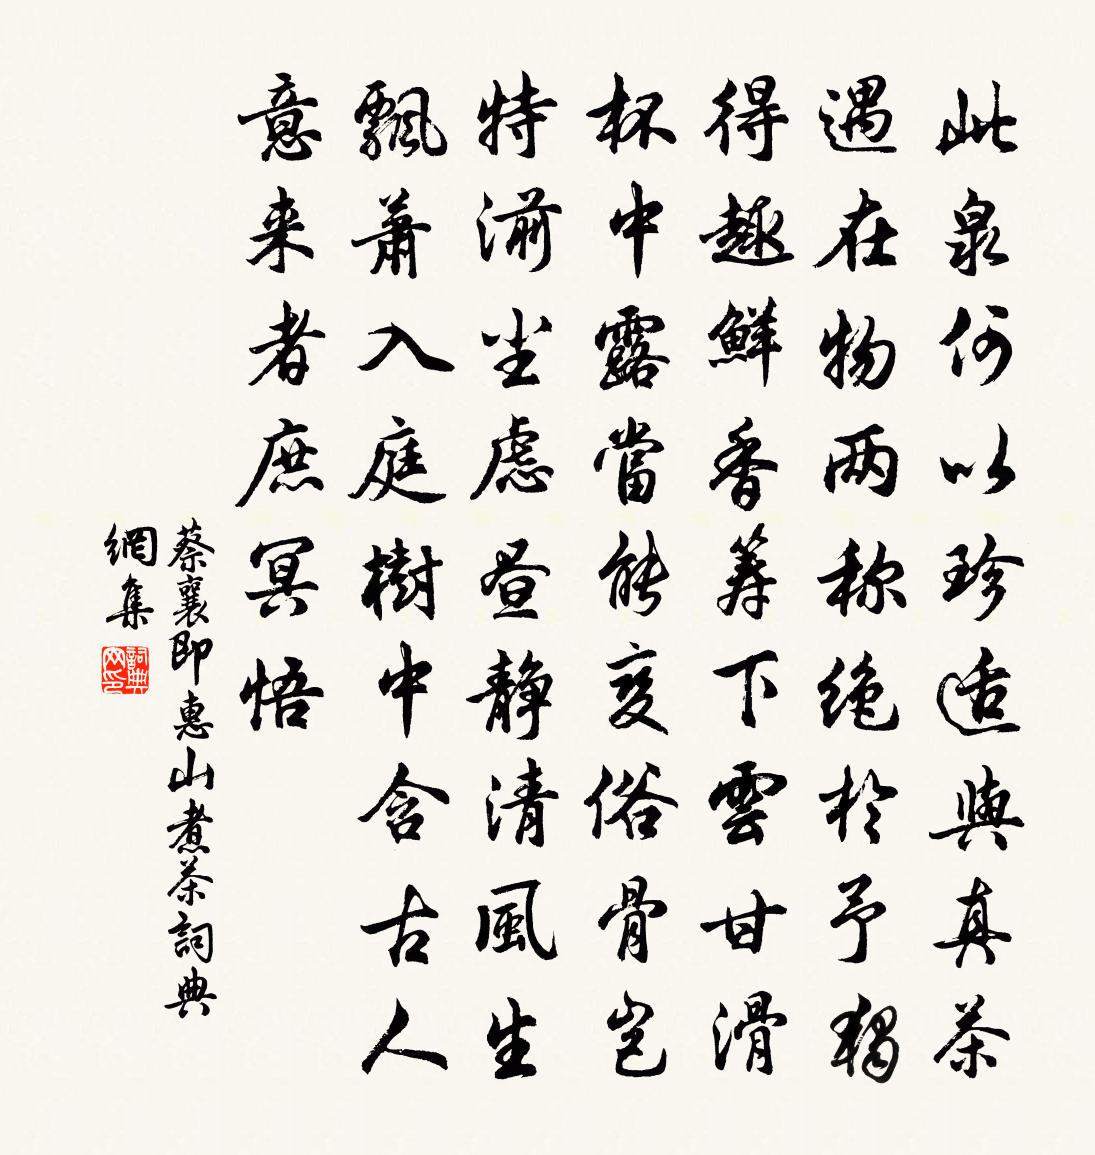 此泉何以珍适與真茶
遇在物两称绝於予獨
得趣鮮香筹下雲甘滑
杯中露當能变俗骨岂
特湔尘虑昼静清風生
飄萧入庭樹中含古人
意来者庶冥悟
蔡襄即惠山煮茶詞典
網集
詞典网印